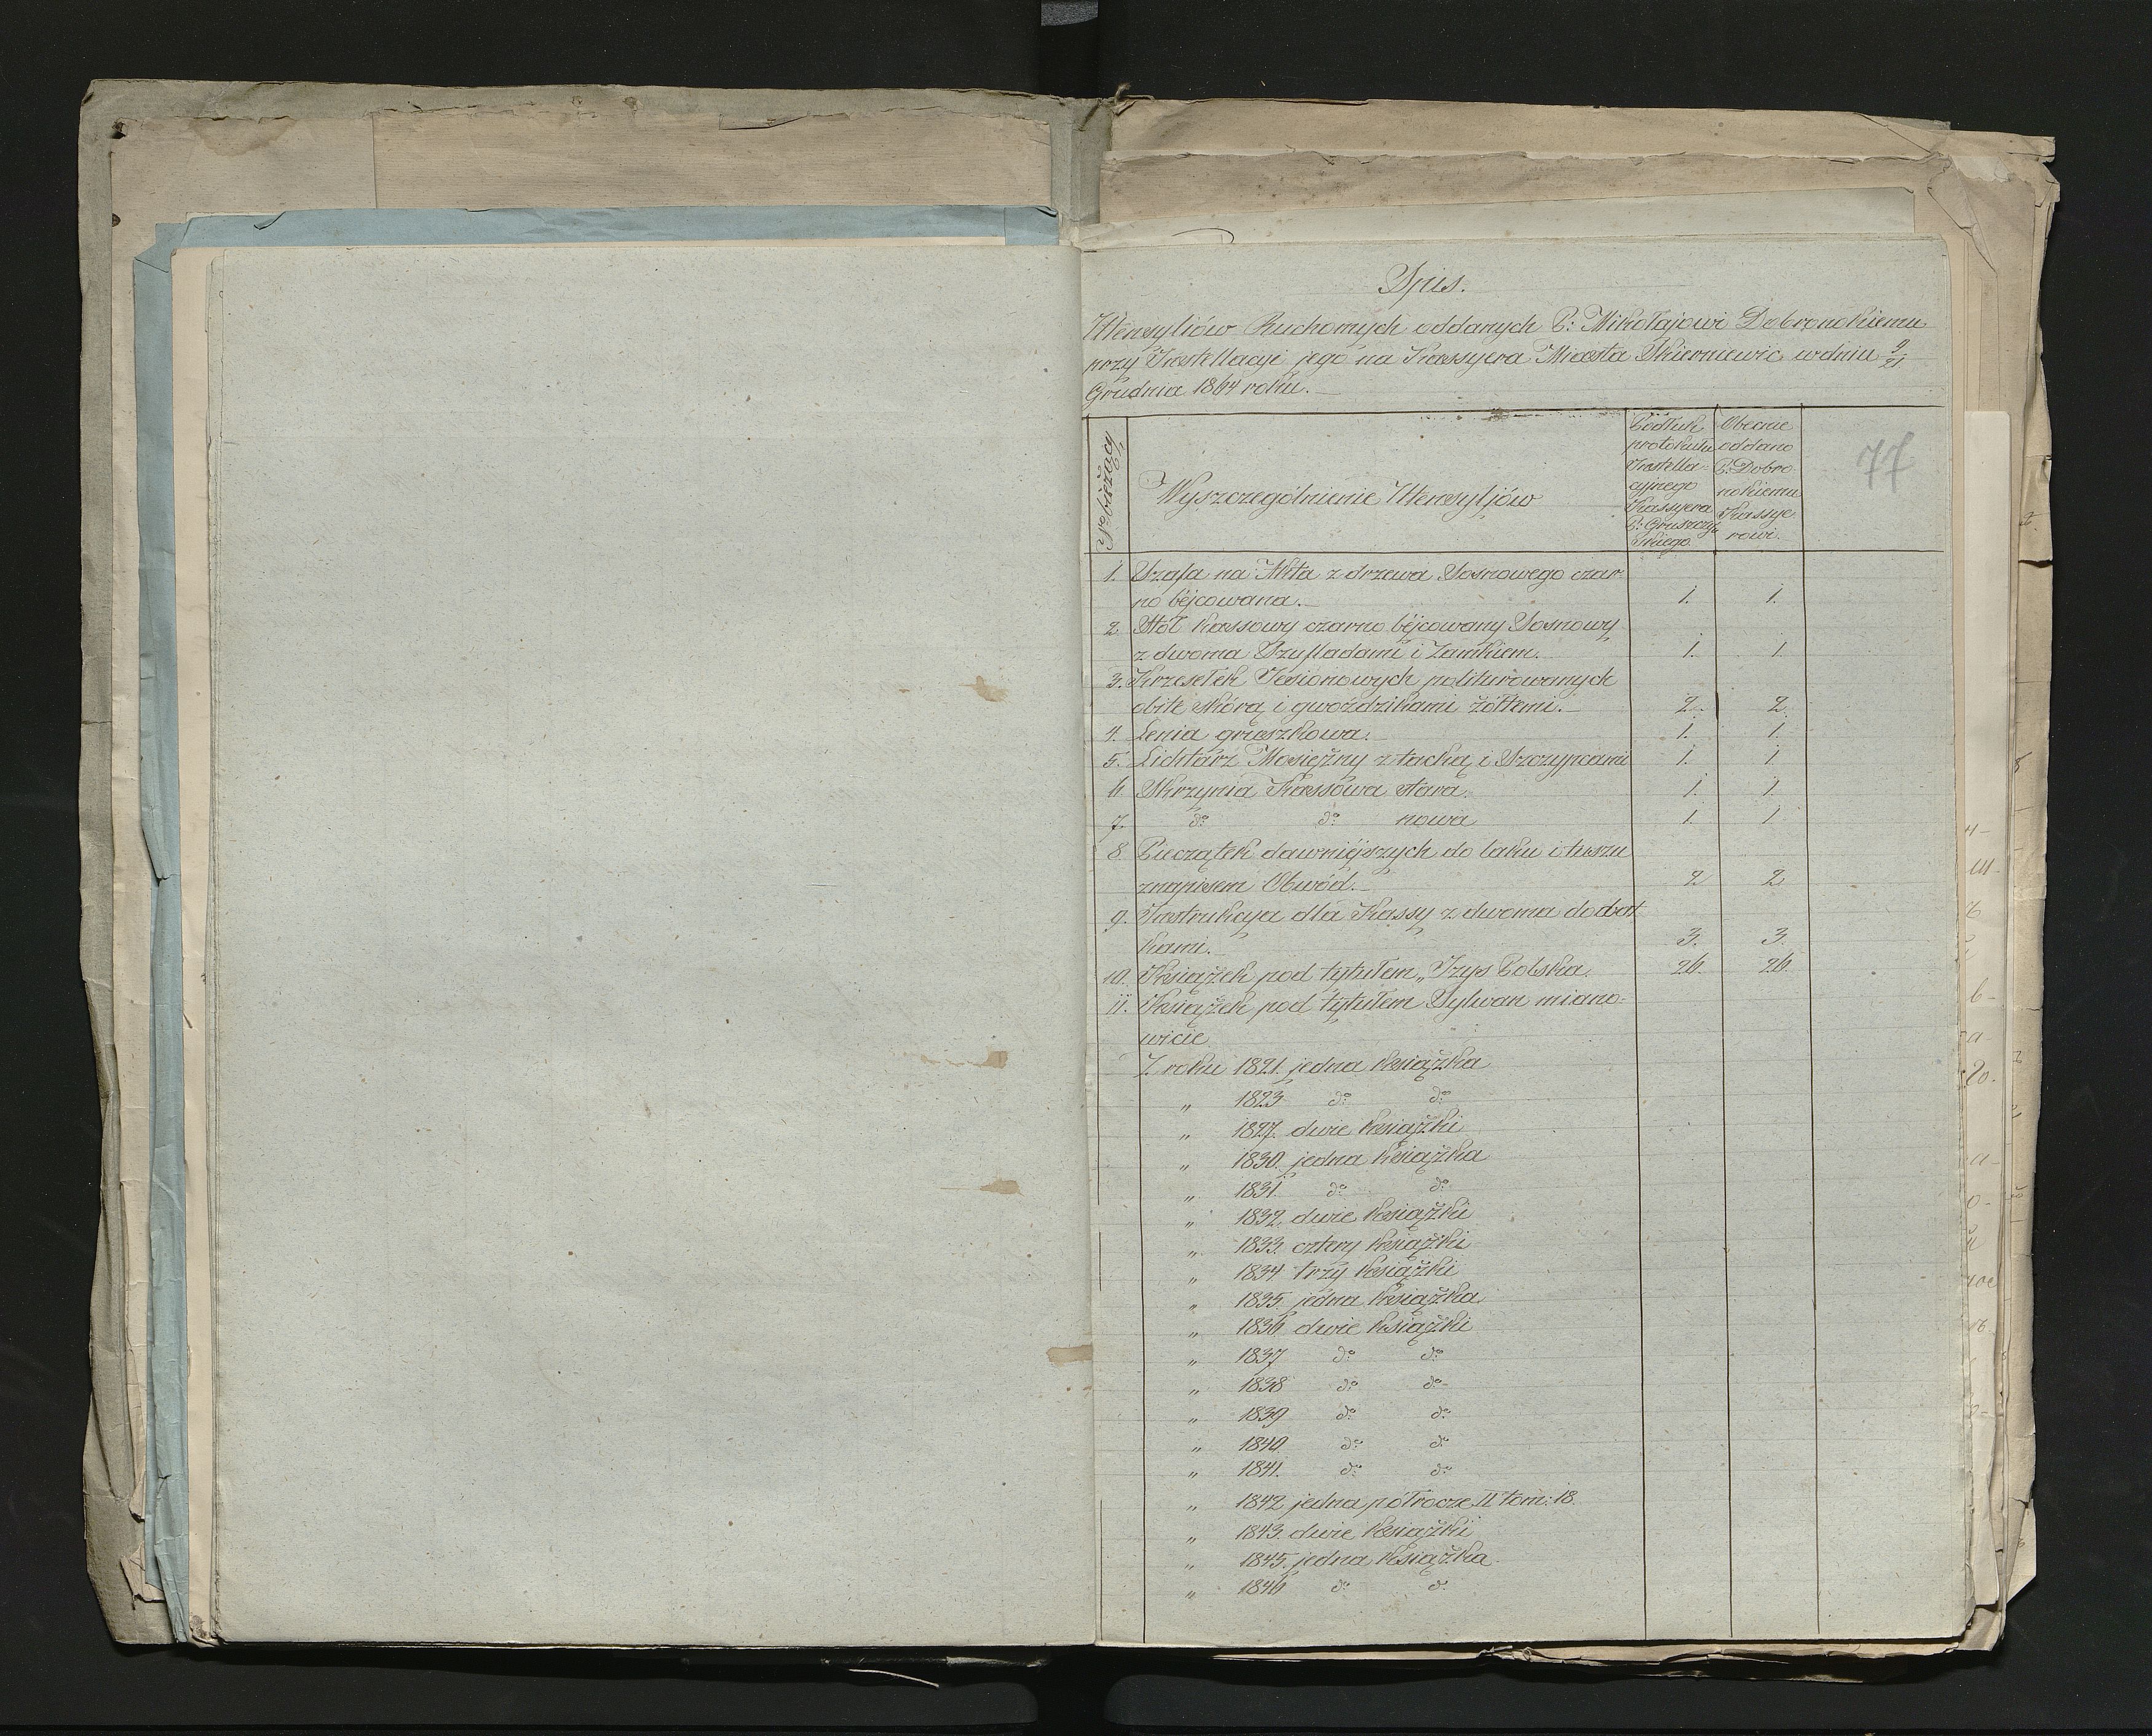 Spis.
Utensyliów Ruchomych oddanych P: Mikołajowi Dobronokiemu
przy Instellacyi jego na Kassyera Miasta Skierniewic w dniu 9/21
Grudnia 1864 roku.
N° bieżący
Wyszczególnienie Utensyljów
Podług
protokułu
Instella-
cyjnego
Kassyera
P: Gruszczyń
skiego
Obecnie
oddano
P: Dobro
nokiemu
Kassye
rowi.
77
1. Szafa na Akta z drzewa Sosnowego czar-
no béjcowana. 1. 1.
2. Stół Kassowy czarno béjcowany Sosnowy
z dwoma Szufladami i Zamkiem. 1. 1.
3. Krzesełek Jesionowych politurowanych
obite skórą i gwoździkami żółtemi. 2. 2.
4. Lenia gruszkowa. 1. 1.
5. Lichtarz Mosiężny z tacką i Szczypcami 1. 1
6 Skrzynia Kassowa stara. 1. 1.
7. do do nowa 1. 1
8. Pieczątek dawniéjszych do laku i tuszu
z napisem Obwód. 2 2
9. Instrukcya dla Kassy z dwoma dodat
kami. 3. 3.
10. Książek pod tytułem „Izys Polska 26. 26.
11. Książek pod tytułem Sylwan miano-
wicie
Z roku 1821. jedna książka
„ 1823 do do
„ 1827. dwie książki
„ 1830. jedna książka
„ 1831. do do
„ 1832. dwie książki
„ 1833. cztery książki
„ 1834 trzy książki
„ 1835. jedna książka
„ 1836 dwie książki
„ 1837 do do
„ 1838 do do
„ 1839 do do
„ 1840 do do
„ 1841. do do
„ 1842 jedna półrocze II tom: 18.
„ 1843. dwie książki
„ 1845. jedna książka
„ 1846 do do